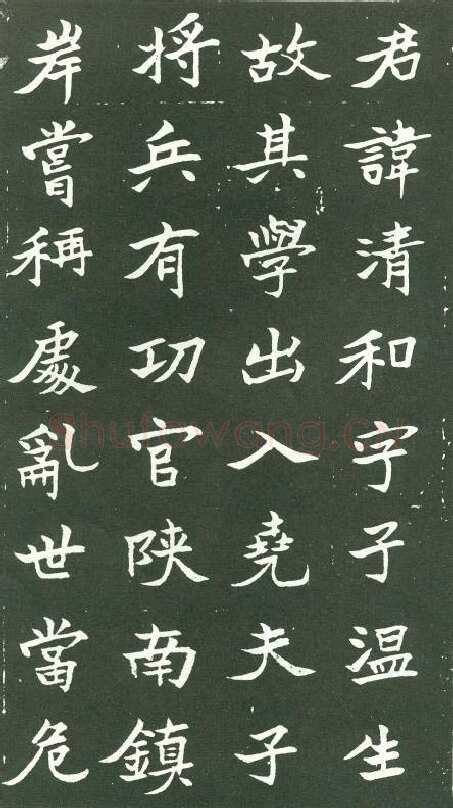 君諱清和字子温生
故其學出入堯夫子
將兵有功官陕南鎮
岸嘗稱處亂世當危
Shufawang.cn